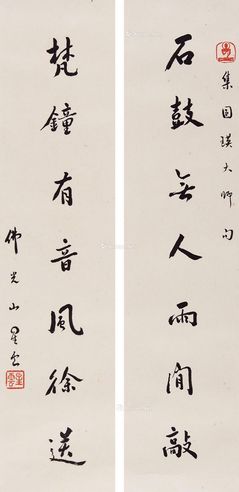 集圓瑛大師句
石鼓無人雨閒敲
梵鐘有音風徐送
佛光山星雲